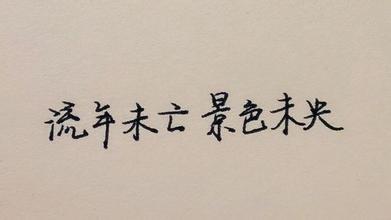 流年未亡 景色未央